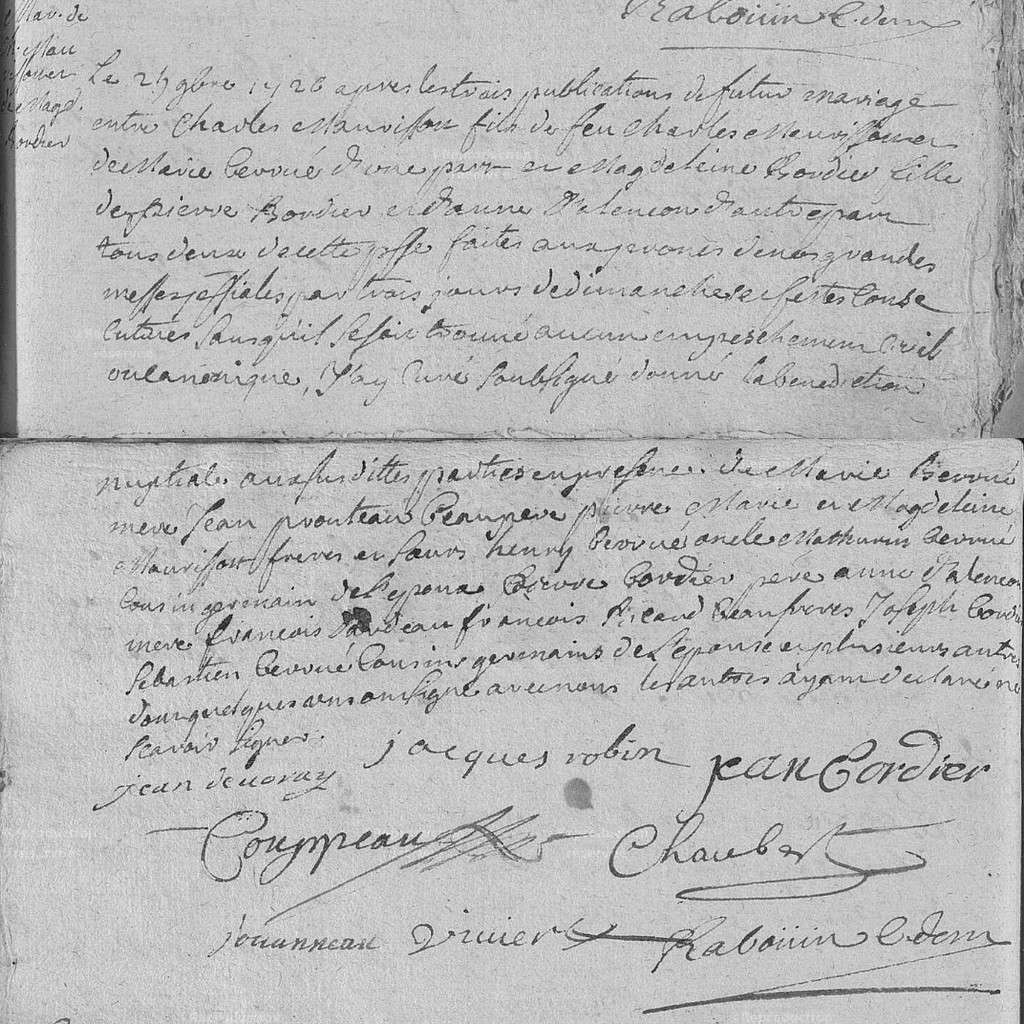 Mar. de
Ch. Mau
risson et
de Magd.
Bordier
Rabouin C. dem
Le 25 9bre 1728 apres les trois publications de futur mariage
entre Charles Maurisson fils de feu Charles Maurisson et
de Marie Berrué d'une part et Magdeleine Bordier fille
de Pierre Bordier et d'anne D'alencon d'autre part
tous deux de cette psse faites aux prones de nos grandes
messes pssiales par trois jours de dimanches et festes conse
cutives sans qu'il se soit trouvé aucun empeschement civil
ou canonique, J'ay curé soubsigné donné la benediction
nuptiale aux susdittes parties en presence de Marie Berrué
mere Jean prouteau beaupere pierre Marie et Magdeleine
Maurisson freres et soeurs henry berrué oncle Mathurin berrué
cousin germain de l'epoux Pierre bordier pere anne D'alencon
mere francois francois Ricard beaufreres Joseph bordier
Sebastien berrué cousins germains de l'epouse et plusieurs autres
dont quelques uns ont signé avec nous les autres ayant declaré ne
scavoir signer.
jean
jacques robin
jean Bordier
Couppeau
Chaubert
jouanneau
Vivier
Rabouin C. dem